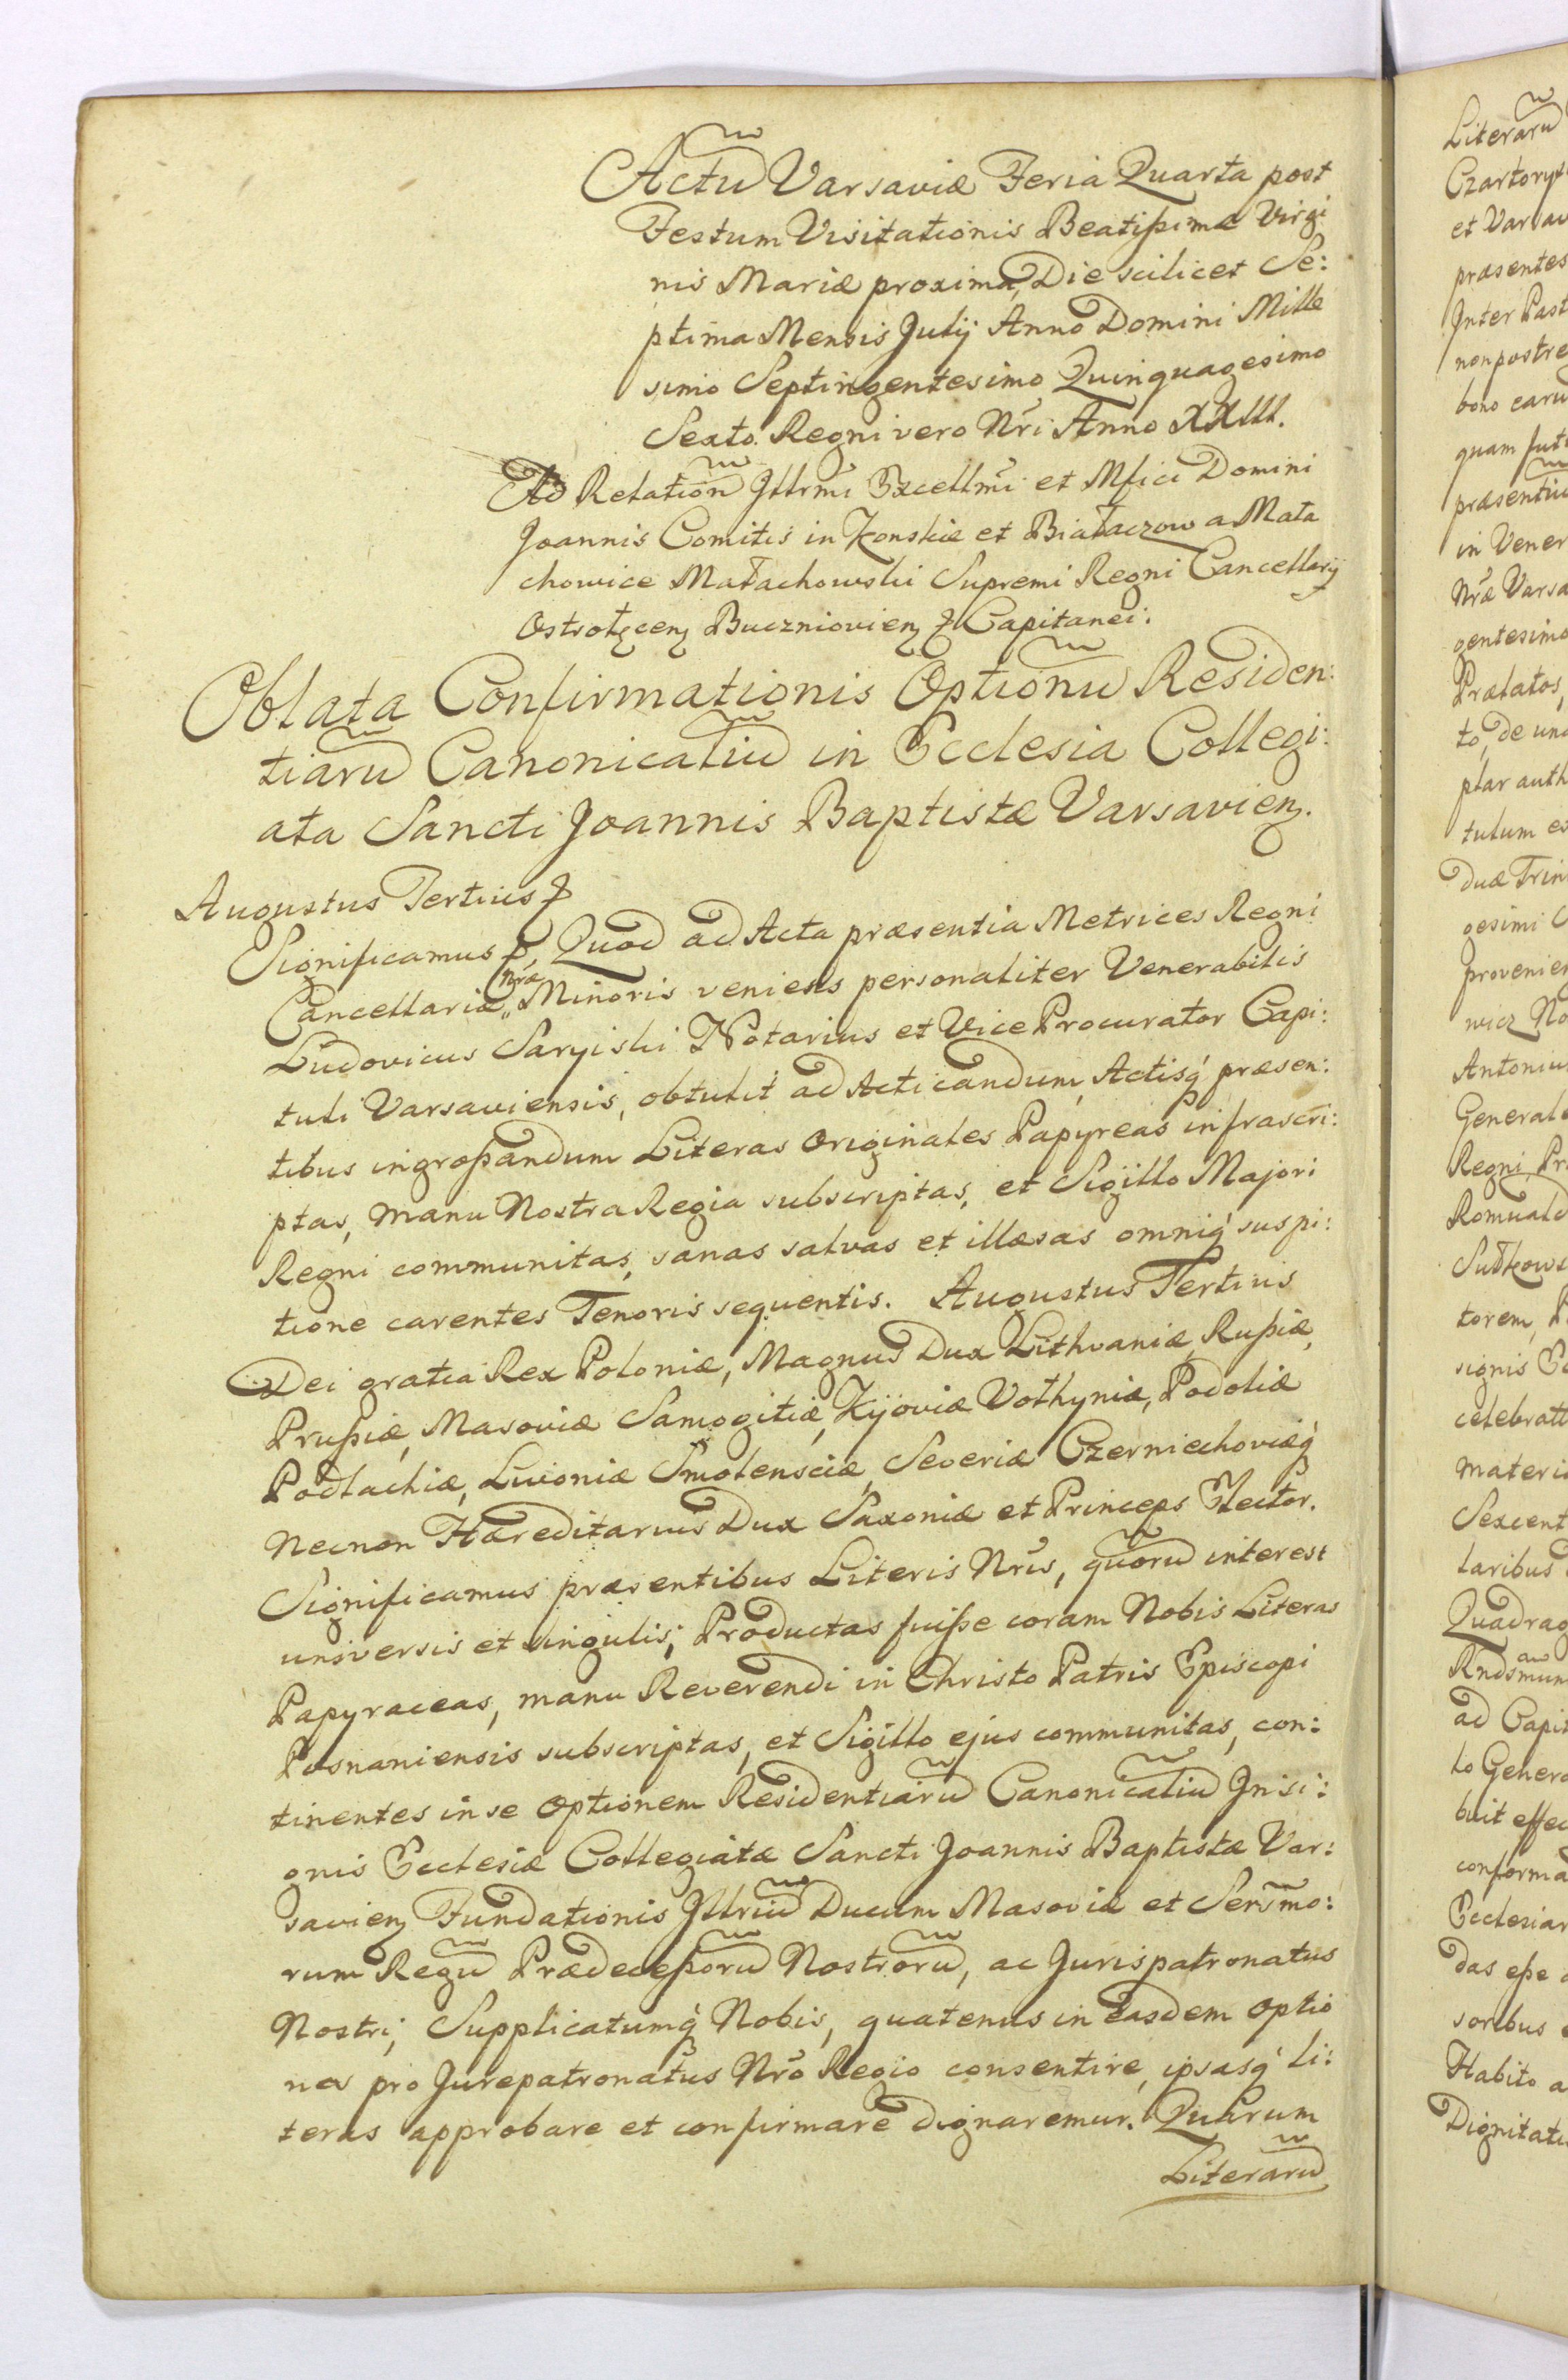 Actū Varsaviæ Feria Quarta post
Festum Visitationis Beatißimæ Virgi
nis Mariæ proxima, Die scilicet Se:
ptima Mensis Julij Anno Domini Mille
simo Septingentesimo Quinquagesimo
Sexto. Regni vero Nr̃i Anno XXIII.
Ad Relationē Jllr̃mi Excellm̃i et Mfici Domini
Joannis Comitis in Konskie et Białaczow a Mała
chowice Małachowski Supremi Regni Cancellarij
Ostrołęcen Buczniovien & Capitanei.
Oblata Confirmationis Optionū Residen:
tiarū Canonicaliū in Ecclesia Collegi:
ata Sancti Joannis Baptistæ Varsavien.
Augustus Tertius &
Significamus &, Quod ad Acta præsentia Metrices Regni
Cancellariæ Nr̃æ Minoris veniens personaliter Venerabilis
Ludovicus Saryiski Notarius et Vice Procurator Capi:
tuli Varsaviensis, obtulit ad Acticandum, Actisq́ præsen:
tibus ingroßandum Literas Originales Papyreas infrascri:
ptas, manu Nostra Regia subscriptas, et Sigillo Majori
Regni communitas, sanas salvas et illæsas omniq́ suspi:
tione carentes Tenoris sequentis. Augustus Tertius
Dei gratia Rex Poloniæ, Magnus Dux Lithvaniæ, Rußiæ,
Prußiæ, Masoviæ Samogitiæ, Kijoviæ Vołhyniæ, Podoliæ
Podlachiæ, Livoniæ Smolensciæ, Severiæ Czerniechoviæq́
Necnon Hæreditarius Dux Saxoniæ et Princeps Elector.
Significamus præsentibus Literis Nr̃is, quorū interest
universis et singulis; Productas fuiße coram Nobis Literas
Papyraceas, manu Reverendi in Christo Patris Episcopi
Posnaniensis subscriptas, et Sigillo ejus communitas, con:
tinentes in se Optionem Residentiarū Canonicaliū Jnsi:
gnis Ecclesiæ Collegiatæ Sancti Joannis Baptistæ Var:
savien Fundationis Jllriū Ducum Masoviæ et Serm̃o:
rum Regū Prædeceßorū Nostrorū, ac Jurispatronatus
Nostri; Supplicatumq́ Nobis, quatenus in easdem Optio
nes pro Jurepatronatus Nr̃o Regio consentire, ipsasq́ li:
teras approbare et confirmare dignaremur. Quarum
Literarū
Literarū
Czartorys
et Varsav
præsentes
Jnter Past
non postre
bono earu
quam futu
præsentiū
in Vener
Nr̃æ Varsa
gentesimo
Prælatos,
to, de una
plar auth
tulum es
duæ Trin
gesimi
provenien
wicz No
Antoniu
Generale
Regni, Pr
Romuald
Sułkows
torem, P
signis Ec
celebratt
materi
Sexcent
laribus
Quadrag
Rndsmum
ad Capit
lo Genera
buit effec
conforma
Ecclesiar
das eße
soribus
Habito a
Dignitati